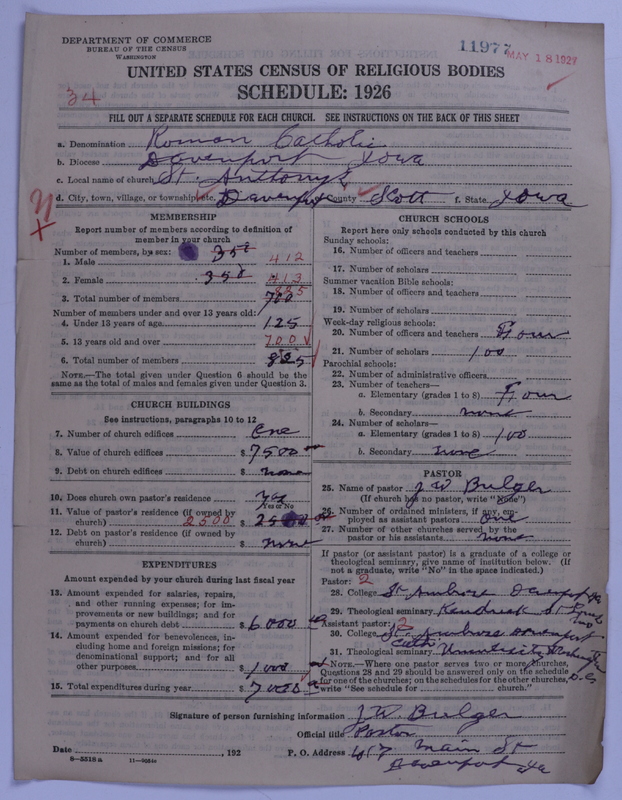 DEPARTMENT OF COMMERCE
BUREAU OF THE CENSUS
WASHINGTON
11977
MAY 18 1927
UNITED STATES CENSUS OF RELIGIOUS BODIES
SCHEDULE: 1926
34
FILL OUT A SEPARATE SCHEDULE FOR EACH CHURCH. SEE INSTRUCTIONS ON THE BACK OF THIS SHEET
a. Denomination Roman Catholic
b. Diocese Davenport Iowa
c. Local name of church St. Anthony's
d. City, town, village, or township, etc. Davenport county Scott f. State Iowa
MEMBERSHIP
Report number of members according to definition of
member in your church
Number of members, by sex:
1. Male 350 412
2. Female 350 413
3. Total number of members 700 825
Number of members under and over 13 years old:
4. Under 13 years of age 125
5. 13 years old and over 700
6. Total number of members 825
NOTE.—The total given under Question 6 should be the
same as the total of males and females given under Question 3.
CHURCH BUILDINGS
See instructions, paragraphs 10 to 12
7. Number of church edifices One
8. Value of church edifices $ 7500
9. Debt on church edifices $ none
10. Does church own pastor's residence Yes
Yes or No
11. Value of pastor's residence (if owned by
church) 2500 $ 2500
12. Debt on pastor's residence (if owned by
church) $ none
EXPENDITURES
Amount expended by your church during last fiscal year
13. Amount expended for salaries, repairs,
and other running expenses; for im-
provements or new buildings; and for
payments on church debt $ 6000
14. Amount expended for benevolences, in-
cluding home and foreign missions; for
denominational support; and for all
other purposes $ 1000
15. Total expenditures during year $ 7000
CHURCH SCHOOLS
Report here only schools conducted by this church
Sunday schools:
16. Number of officers and teachers
17. Number of scholars
Summer vacation Bible schools:
18. Number of officers and teachers
19. Number of scholars
Week-day religious schools:
20. Number of officers and teachers Four
21. Number of scholars 100
Parochial schools:
22. Number of administrative officers
23. Number of teachers—
a. Elementary (grades 1 to 8) Four
b. Secondary none
24. Number of scholars—
a. Elementary (grades 1 to 8) 100
b. Secondary none
PASTOR
25. Name of pastor J. W. Bulger
(If church has no pastor, write "None")
26. Number of ordained ministers, if any, em-
ployed as assistant pastors One
27. Number of other churches served by the
pastor or his assistants none
If pastor (or assistant pastor) is a graduate of a college or
theological seminary, give name of institution below. (If
not a graduate, write "No" in the space indicated.)
Pastor: 2
28. College St Ambrose Davenport Ia
29. Theological seminary Kendrick St Louis Mo
Assistant pastor: 2
30. College St Ambrose Davenport
31. Theological seminary Cath. University Washington D.C.
NOTE.—Where one pastor serves two or more churches,
Questions 28 and 29 should be answered only on the schedule
for one of the churches; on the schedules for the other churches,
write "See schedule for church."
Signature of person furnishing information J. W. Bulger
Official title Pastor
Date , 192 P. O. Address 417 Main St
Davenport Ia
8—5518 a 11—9034a